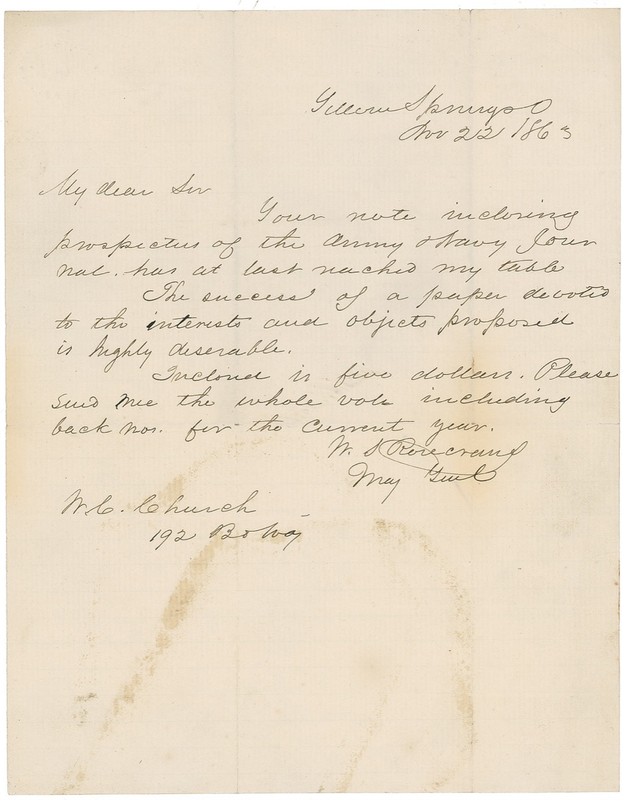 Yellow Springs O
Nov 22 1863
My dear Sir
Your note inclosing
prospectus of the Army & Navy Jour
nal. has at last reached my table
The success of a paper devoted
to the interests and objects proposed
is highly deserable.
Inclosed is five dollars. Please
send me the whole vol. including
back nos. for the current year.
W. S Rosecrans
Maj Genl
W. C. Church
192 BdWay